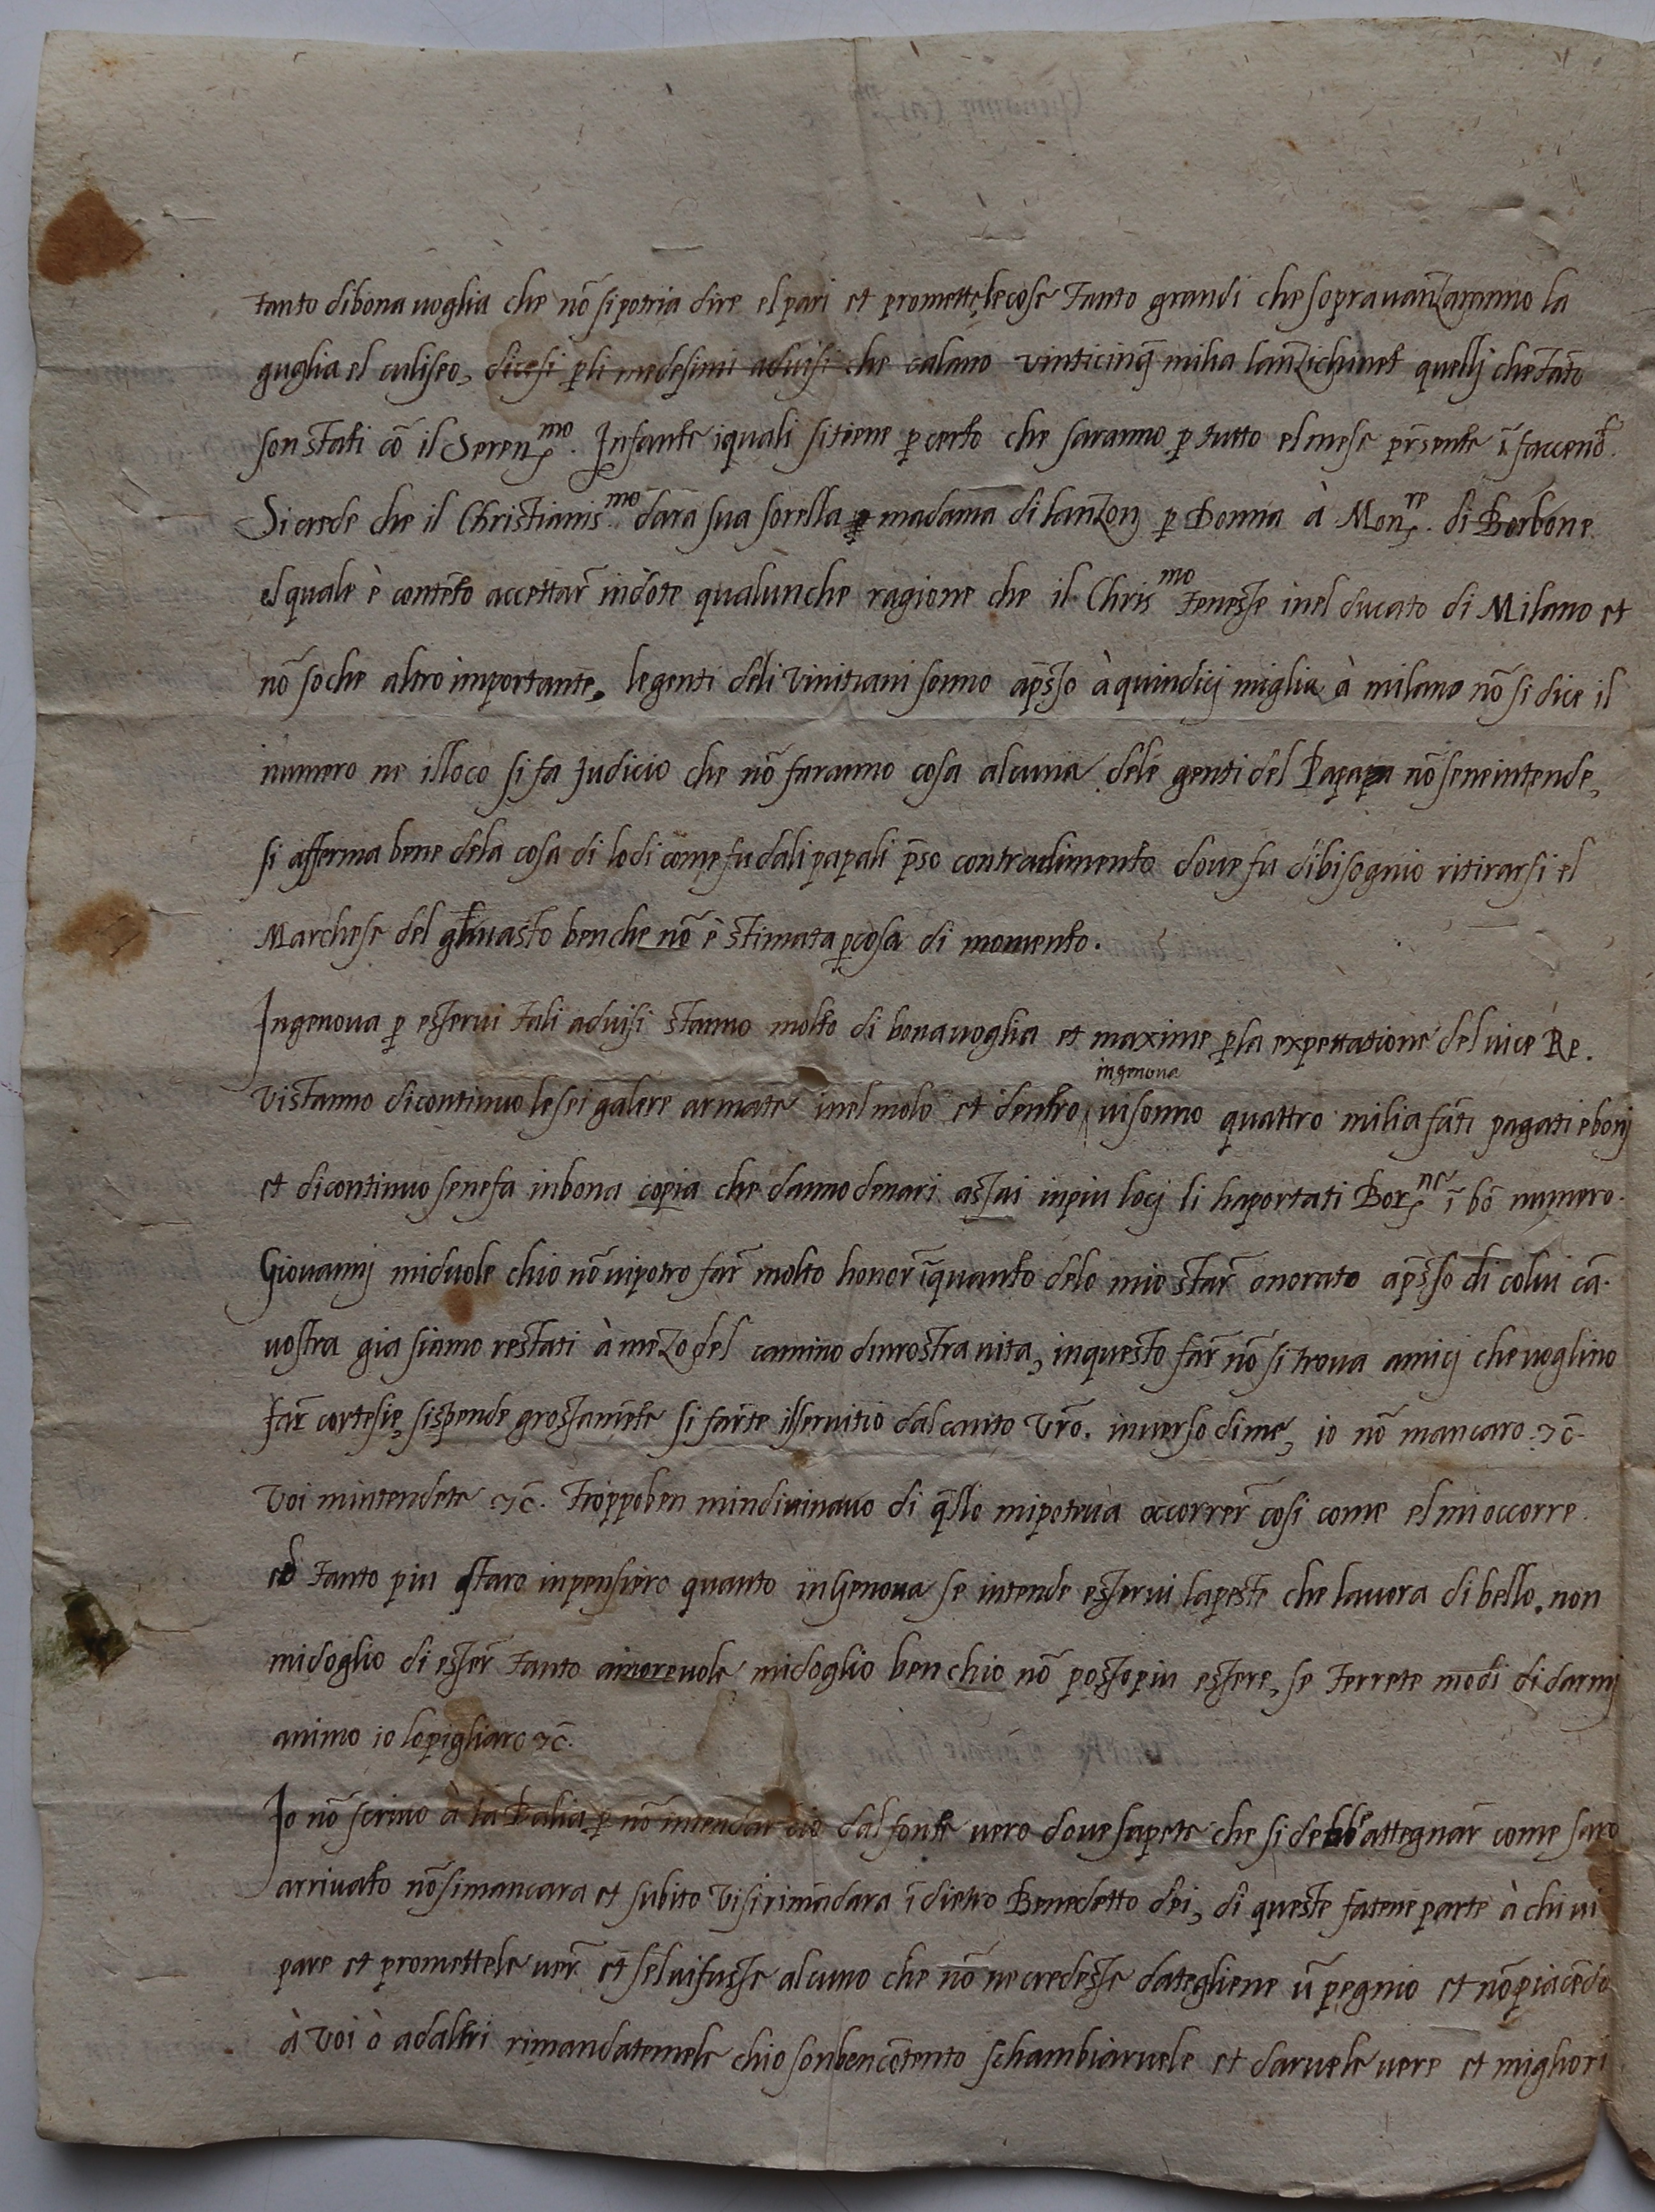 tanto dibona uoglia che nō sipotria dire elpari et promette lecose tanto grandi che soprauanzaranno la
guglia el culiseo, dicesi p̱li medesimi aduisi che calano vinticinq̄ milia lanzichinet quellj chetāto
son stati cō il Seren.mo Infante iquali sitiene p̱ certo che saranno p̱ tutto elmese p̄sente ī facceno.
Si crede che il Christianis.mo dara sua sorella madama di lanzonj p̱ Donna à Mon.re di Borbone
elquale è contēto accettar̄ indote qualunche ragione che il Chris.mo tenesse inel ducato di Milano et
nō soche altro importante. legenti deli Vinitiani sonno ap̄sso à quindicj miglia à milano nō si dice il
numero ne illoco si fa judicio che nō faranno cosa alcuna dele genti del Papa nō seneintende,
si afferma bene dela cosa di lodi come fu dali papali p̄so contradimento doue fu dibisognio ritirarsi el
Marchese del ghuasto benche nō è stimata p̱cosa di momento.
Ingenoua p̱ esserui tali aduisi stanno molto di bonauoglia et maxime p̱la expettatione del uice Re.
Vistanno dicontinuo lesei galere armate inel molo et dentro ingenoua uisonno quattro milia fāti pagati e bonj
et dicontinuo senefa inbona copia che danno denari assai inpiu locj li haportati Bor.ne ī bō numero.
Giouannj miduole chio nō uipotro far̄ molto honor īquanto delo mio star̄ onorato ap̄sso di colui cā.
uostra gia siamo restati à mezo del camino dinrostra uita, inquesto far̄ nō si troua amicj che uoglino
far̄ cortesie, sispende grossamēte si farte ilseruitio dal canto Vrō. inuerso dime, io nō mancaro ⁊c̄.
Voi mintendete ⁊c̄. troppoben mindiuinauo di q̄llo mipotuia occorrer̄ cosi come el mi occorre.
et tanto piu staro inpensiero quanto in Genoua se intende esserui lapeste che lauora di bello. non
midoglio di esser̄ tanto amoreuole midoglio ben chio nō possopiu essere, se terrete modi di darmj
animo io lopigliaro ⁊c̄.
Io nō scriuo à la Balia p̱ nō intendar cio dal fonte uero doue sapete che si debbe attegnar̄ come saro
arriuato nōsimancara et subito Visirimādara ī dietro Benedetto dei, di queste fatene parte à chi ui
pare et promettele uer̄ et seluifusse alcuno che nō necredesse dategliene ū pegnio et nōpiacēdo
à Voi ò adaltri rimandatemele chio sonbencōtento schambiaruele et daruele uere et migliori